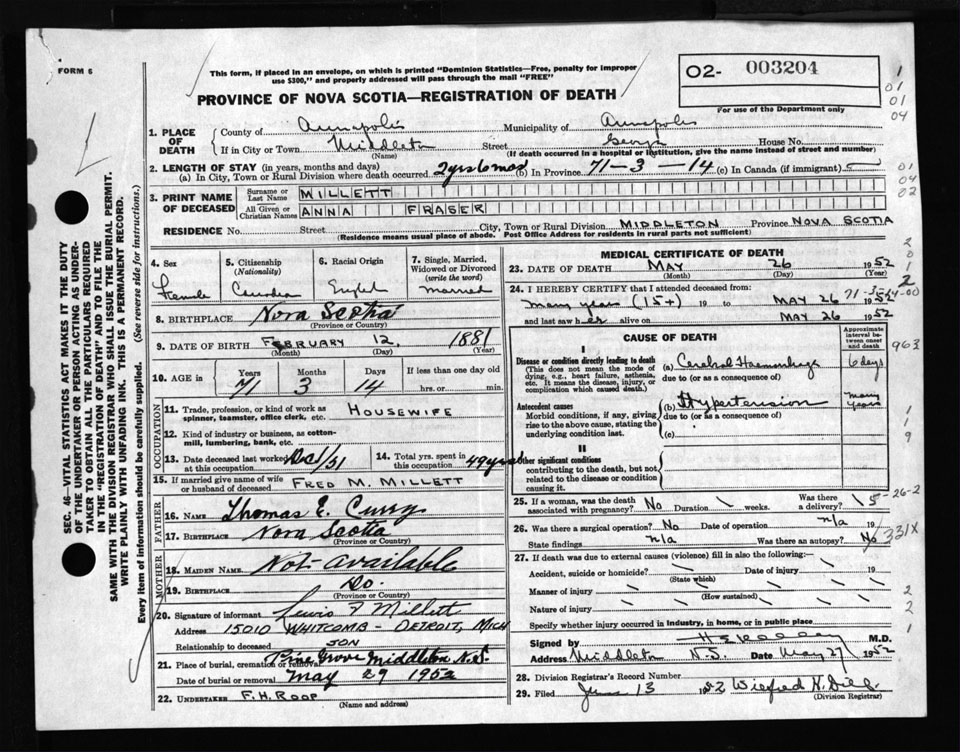 FORM 6
This form, if placed in an envelope, on which is printed "Dominion Statistics—Free, penalty for improper
use $300," and properly addressed will pass through the mail "FREE"
PROVINCE OF NOVA SCOTIA—REGISTRATION OF DEATH
02- 003204
For use of the Department only
1
01
04
1. PLACE OF DEATH
County of Annapolis Municipality of Annapolis
If in City or Town Middleton Street George House No.
(Name) (If death occurred in a hospital or institution, give the name instead of street and number)
2. LENGTH OF STAY (in years, months and days)
(a) In City, Town or Rural Division where death occurred 2 yrs 6 mos (b) In Province 71-3-14 (c) In Canada (if immigrant)
01
04
02
3. PRINT NAME OF DECEASED
Surname or Last Name MILLETT
All Given or Christian Names ANNA FRASER
RESIDENCE No. Street City, Town or Rural Division MIDDLETON Province NOVA SCOTIA
(Residence means usual place of abode. Post Office Address for residents in rural parts not sufficient)
4. Sex Female
5. Citizenship (Nationality) Canadian
6. Racial Origin English
7. Single, Married, Widowed or Divorced (write the word) Married
8. BIRTHPLACE Nova Scotia
(Province or Country)
9. DATE OF BIRTH FEBRUARY 12, 1881
(Month) (Day) (Year)
10. AGE in Years Months Days If less than one day old
71 3 14 hrs. or min.
OCCUPATION
11. Trade, profession, or kind of work as spinner, teamster, office clerk, etc. HOUSEWIFE
12. Kind of industry or business, as cotton-mill, lumbering, bank, etc.
13. Date deceased last worked at this occupation Dec/51
14. Total yrs. spent in this occupation 49 yrs
15. If married give name of wife or husband of deceased FRED M. MILLETT
FATHER
16. NAME Thomas E. Curry
17. BIRTHPLACE Nova Scotia
(Province or Country)
MOTHER
18. MAIDEN NAME Not available
19. BIRTHPLACE Do.
(Province or Country)
20. Signature of informant Lewis F Millett
Address 15010 WHITCOMB - DETROIT, MICH
Relationship to deceased SON
21. Place of burial, cremation or removal Pine Grove Middleton N.S.
Date of burial or removal May 29 1952
22. UNDERTAKER F.H. ROOP
(Name and address)
MEDICAL CERTIFICATE OF DEATH
23. DATE OF DEATH MAY 26 1952
(Month) (Day) (Year)
24. I HEREBY CERTIFY that I attended deceased from:
many years (15+) 19 to MAY 26 1952
and last saw her alive on MAY 26 1952
CAUSE OF DEATH
Approximate interval between onset and death
I
Disease or condition directly leading to death
(This does not mean the mode of dying, e.g., heart failure, asthenia, etc. It means the disease, injury, or complication which caused death.)
(a) Cerebral Haemorrhage 6 days
due to (or as a consequence of)
Antecedent causes
Morbid conditions, if any, giving rise to the above cause, stating the underlying condition last.
(b) Hypertension many years
due to (or as a consequence of)
(c)
II
Other significant conditions
contributing to the death, but not related to the disease or condition causing it.
963
25. If a woman, was the death associated with pregnancy? No Duration weeks. Was there a delivery?
26. Was there a surgical operation? No Date of operation n/a 19
State findings n/a Was there an autopsy? No
331X
27. If death was due to external causes (violence) fill in also the following:—
Accident, suicide or homicide? Date of injury 19
(State which)
Manner of injury
(How sustained)
Nature of injury
Specify whether injury occurred in industry, in home, or in public place
Signed by M.D.
Address Middleton N.S. Date May 27 1952
28. Division Registrar's Record Number
29. Filed June 13 1952 Wilfred H.
(Division Registrar)
SEC. 46—VITAL STATISTICS ACT MAKES IT THE DUTY
OF THE UNDERTAKER OR PERSON ACTING AS UNDER-
TAKER TO OBTAIN ALL THE PARTICULARS REQUIRED
IN THE "REGISTRATION OF DEATH" AND TO FILE THE
SAME WITH THE DIVISION REGISTRAR WHO SHALL ISSUE THE BURIAL PERMIT.
WRITE PLAINLY WITH UNFADING INK. THIS IS A PERMANENT RECORD.
Every item of information should be carefully supplied. (See reverse side for instructions.)